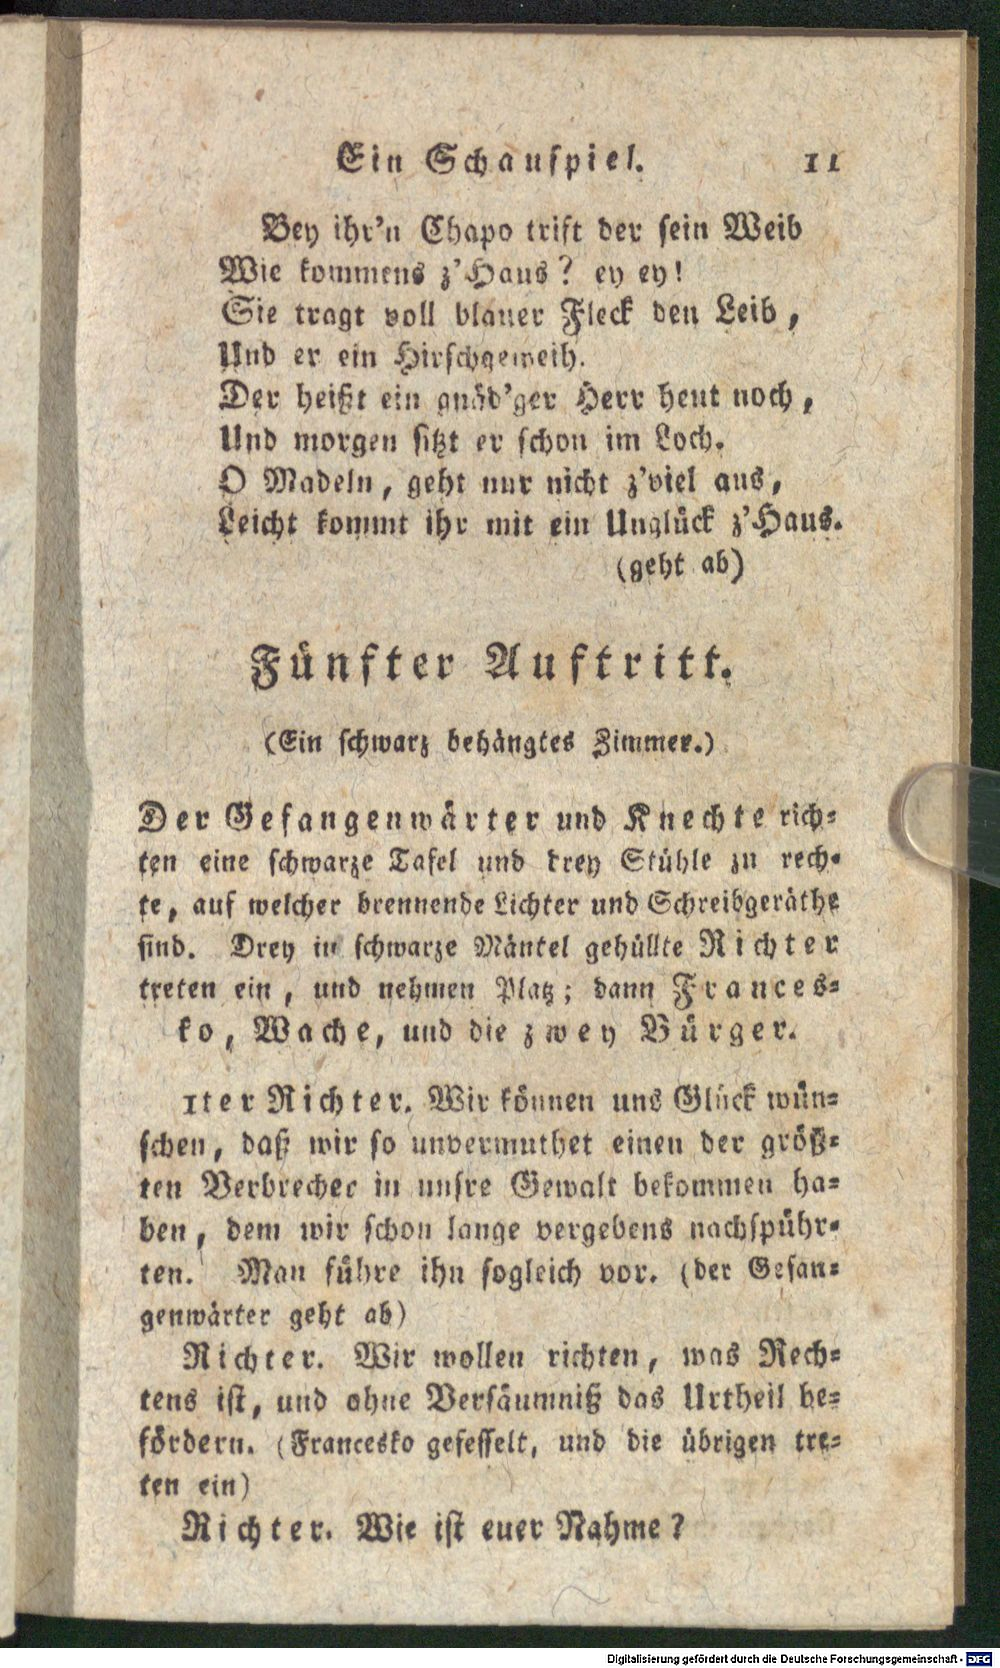 Ein Schauspiel. 11
Bey ihr'n Chapo trift der sein Weib
Wie kommens z'Haus? ey ey!
Sie tragt voll blauer Fleck den Leib,
Und er ein Hirschgeweih.
Der heißt ein gnäd'ger Herr heut noch,
Und morgen sitzt er schon im Loch.
O Madeln, geht nur nicht z'viel aus,
Leicht kommt ihr mit ein Unglück z'Haus.
(geht ab)
Fünfter Auftritt.
(Ein schwarz behängtes Zimmer.)
Der Gefangenwärter und Knechte rich-
ten eine schwarze Tafel und drey Stühle zu rech-
te, auf welcher brennende Lichter und Schreibgeräthe
sind. Drey in schwarze Mäntel gehüllte Richter
treten ein, und nehmen Platz; dann Frances-
ko, Wache, und die zwey Bürger.
1ter Richter. Wir können uns Glück wün-
schen, daß wir so unvermuthet einen der größ-
ten Verbrecher in unsre Gewalt bekommen ha-
ben, dem wir schon lange vergebens nachspühr-
ten. Man führe ihn sogleich vor. (der Gefan-
genwärter geht ab)
Richter. Wir wollen richten, was Rech-
tens ist, und ohne Versäumniß das Urtheil be-
fördern. (Francesko gefesselt, und die übrigen tre-
ten ein)
Richter. Wie ist euer Nahme?
Digitalisierung gefördert durch die Deutsche Forschungsgemeinschaft - DFG